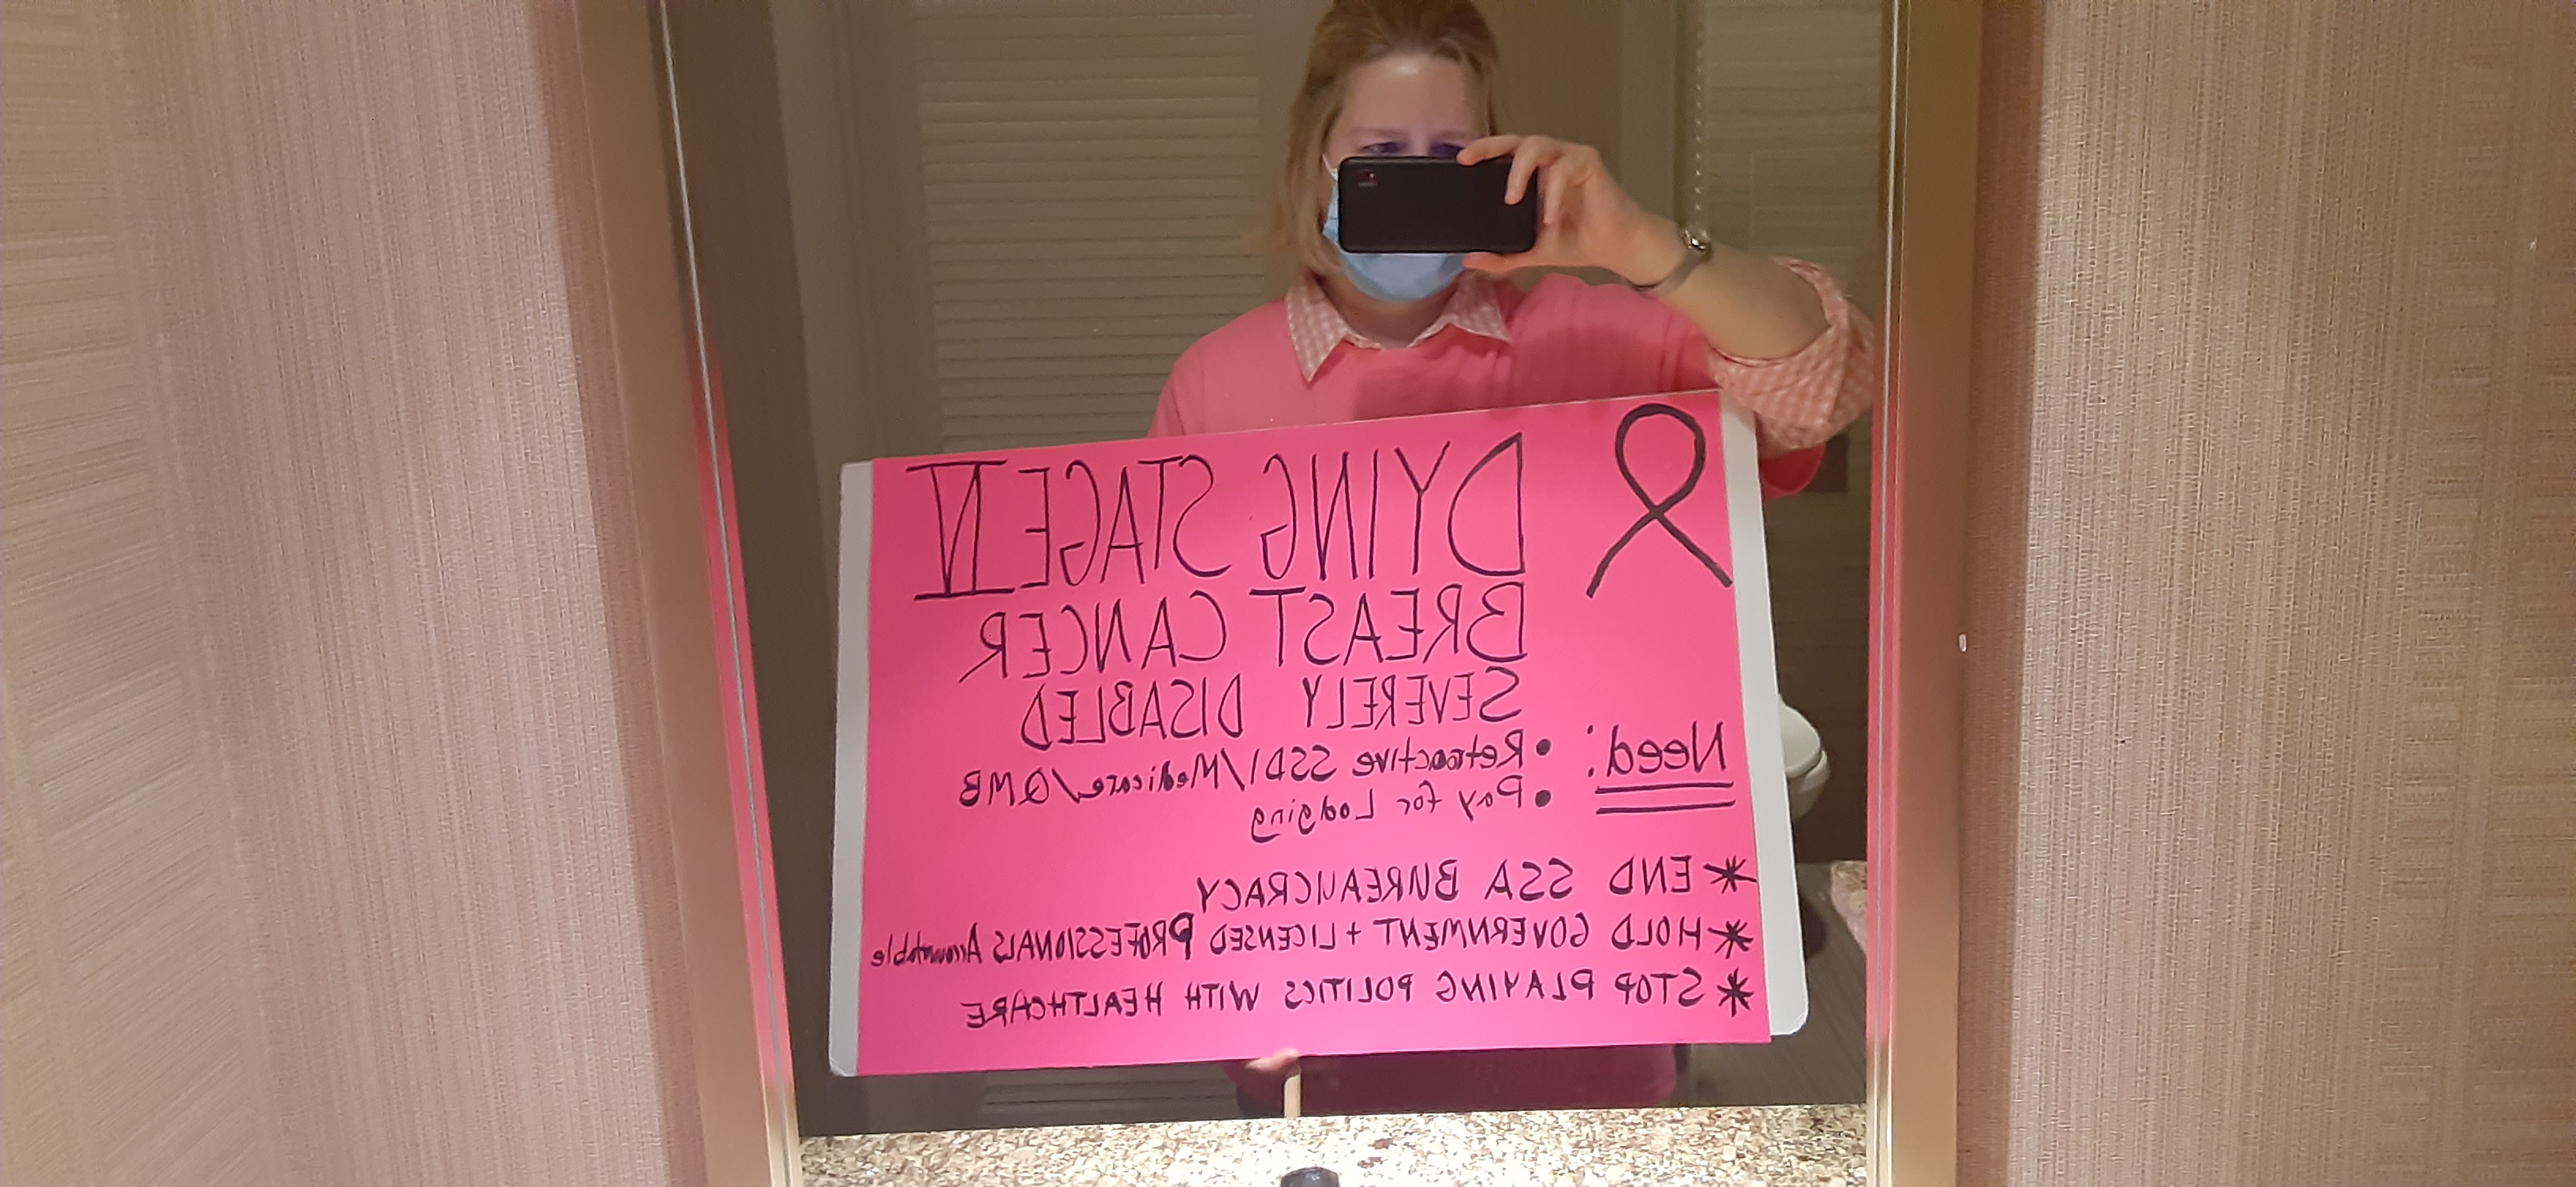 DYING STAGE IV
BREAST CANCER
SEVERELY DISABLED
Need:
• Retroactive SSDI/Medicare/QMB
• Pay for Lodging
* END SSA BUREAUCRACY
* HOLD GOVERNMENT + LICENSED PROFESSIONALS Accountable
* STOP PLAYING POLITICS WITH HEALTHCARE